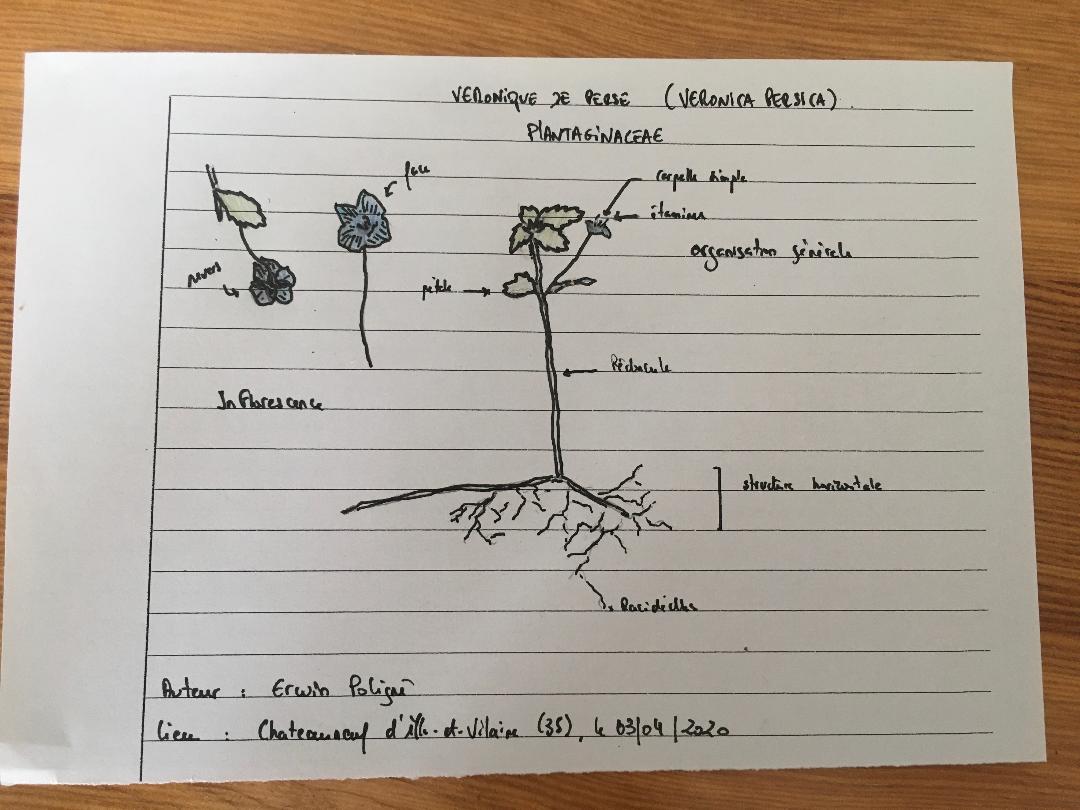 VERONIQUE DE PERSE (VERONICA PERSICA)
PLANTAGINACEAE
face
carpelle simple
étamines
organisation générale
revers
pétale
Pédoncule
Inflorescence
structure horizontale
Racidielles
Auteur : Erwin Poligné
Lieu : Chateauneuf d'Ille-et-Vilaine (35), le 03/04/2020